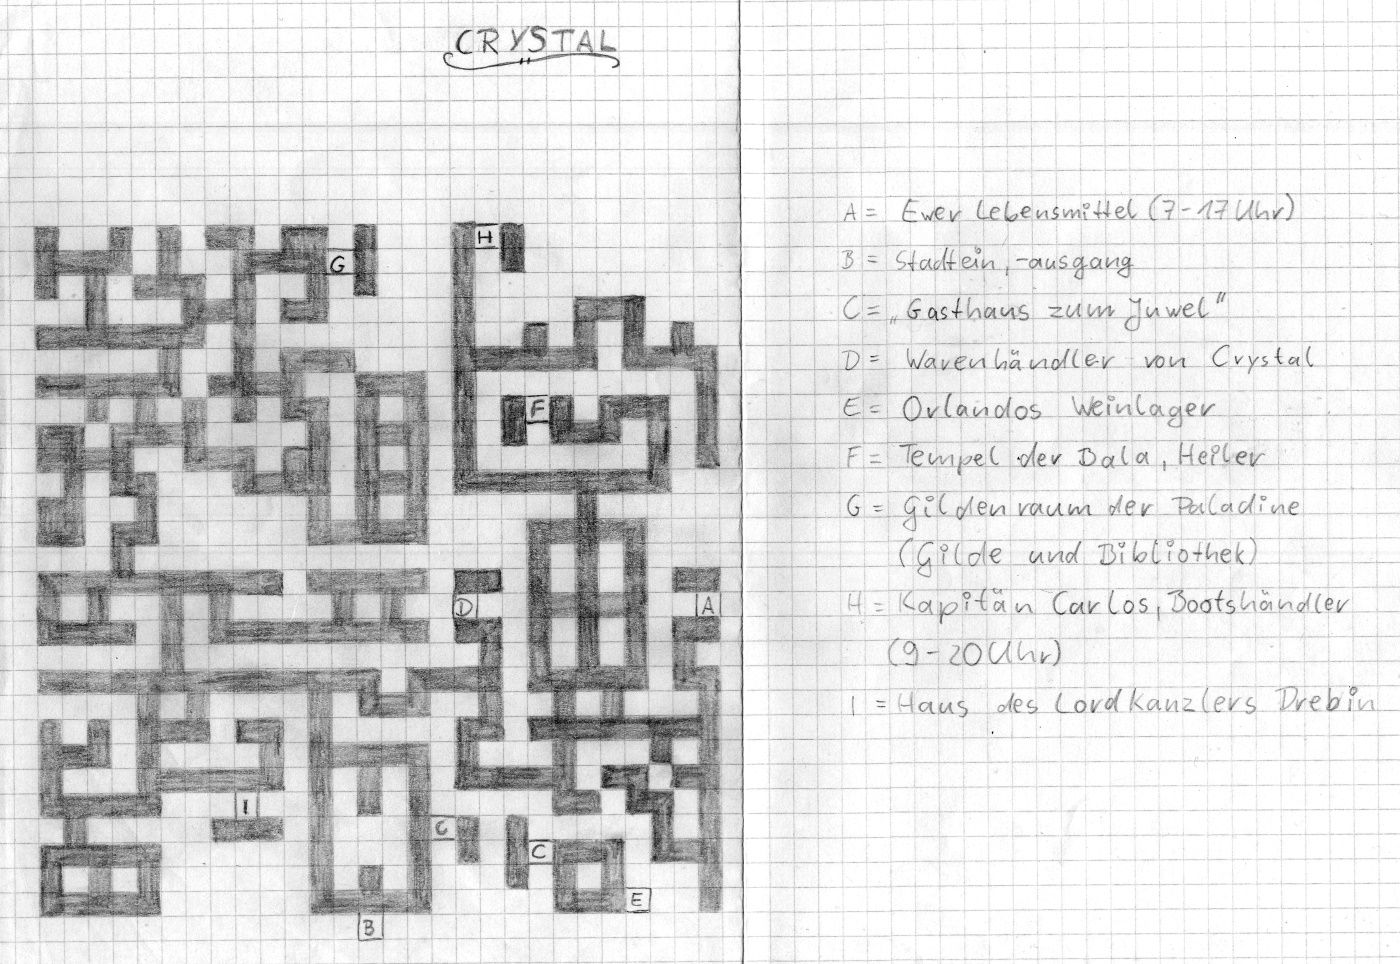 CRYSTAL
H
G
F
D
A
I
C
C
E
B
A = Ewer Lebensmittel (7-17 Uhr)
B = Stadtein,-ausgang
C = „Gasthaus zum Juwel"
D = Warenhändler von Crystal
E = Orlandos Weinlager
F = Tempel der Bala, Heiler
G = Gildenraum der Paladine
(Gilde und Bibliothek)
H = Kapitän Carlos, Bootshändler
(9-20 Uhr)
I = Haus des Lordkanzlers Drebin